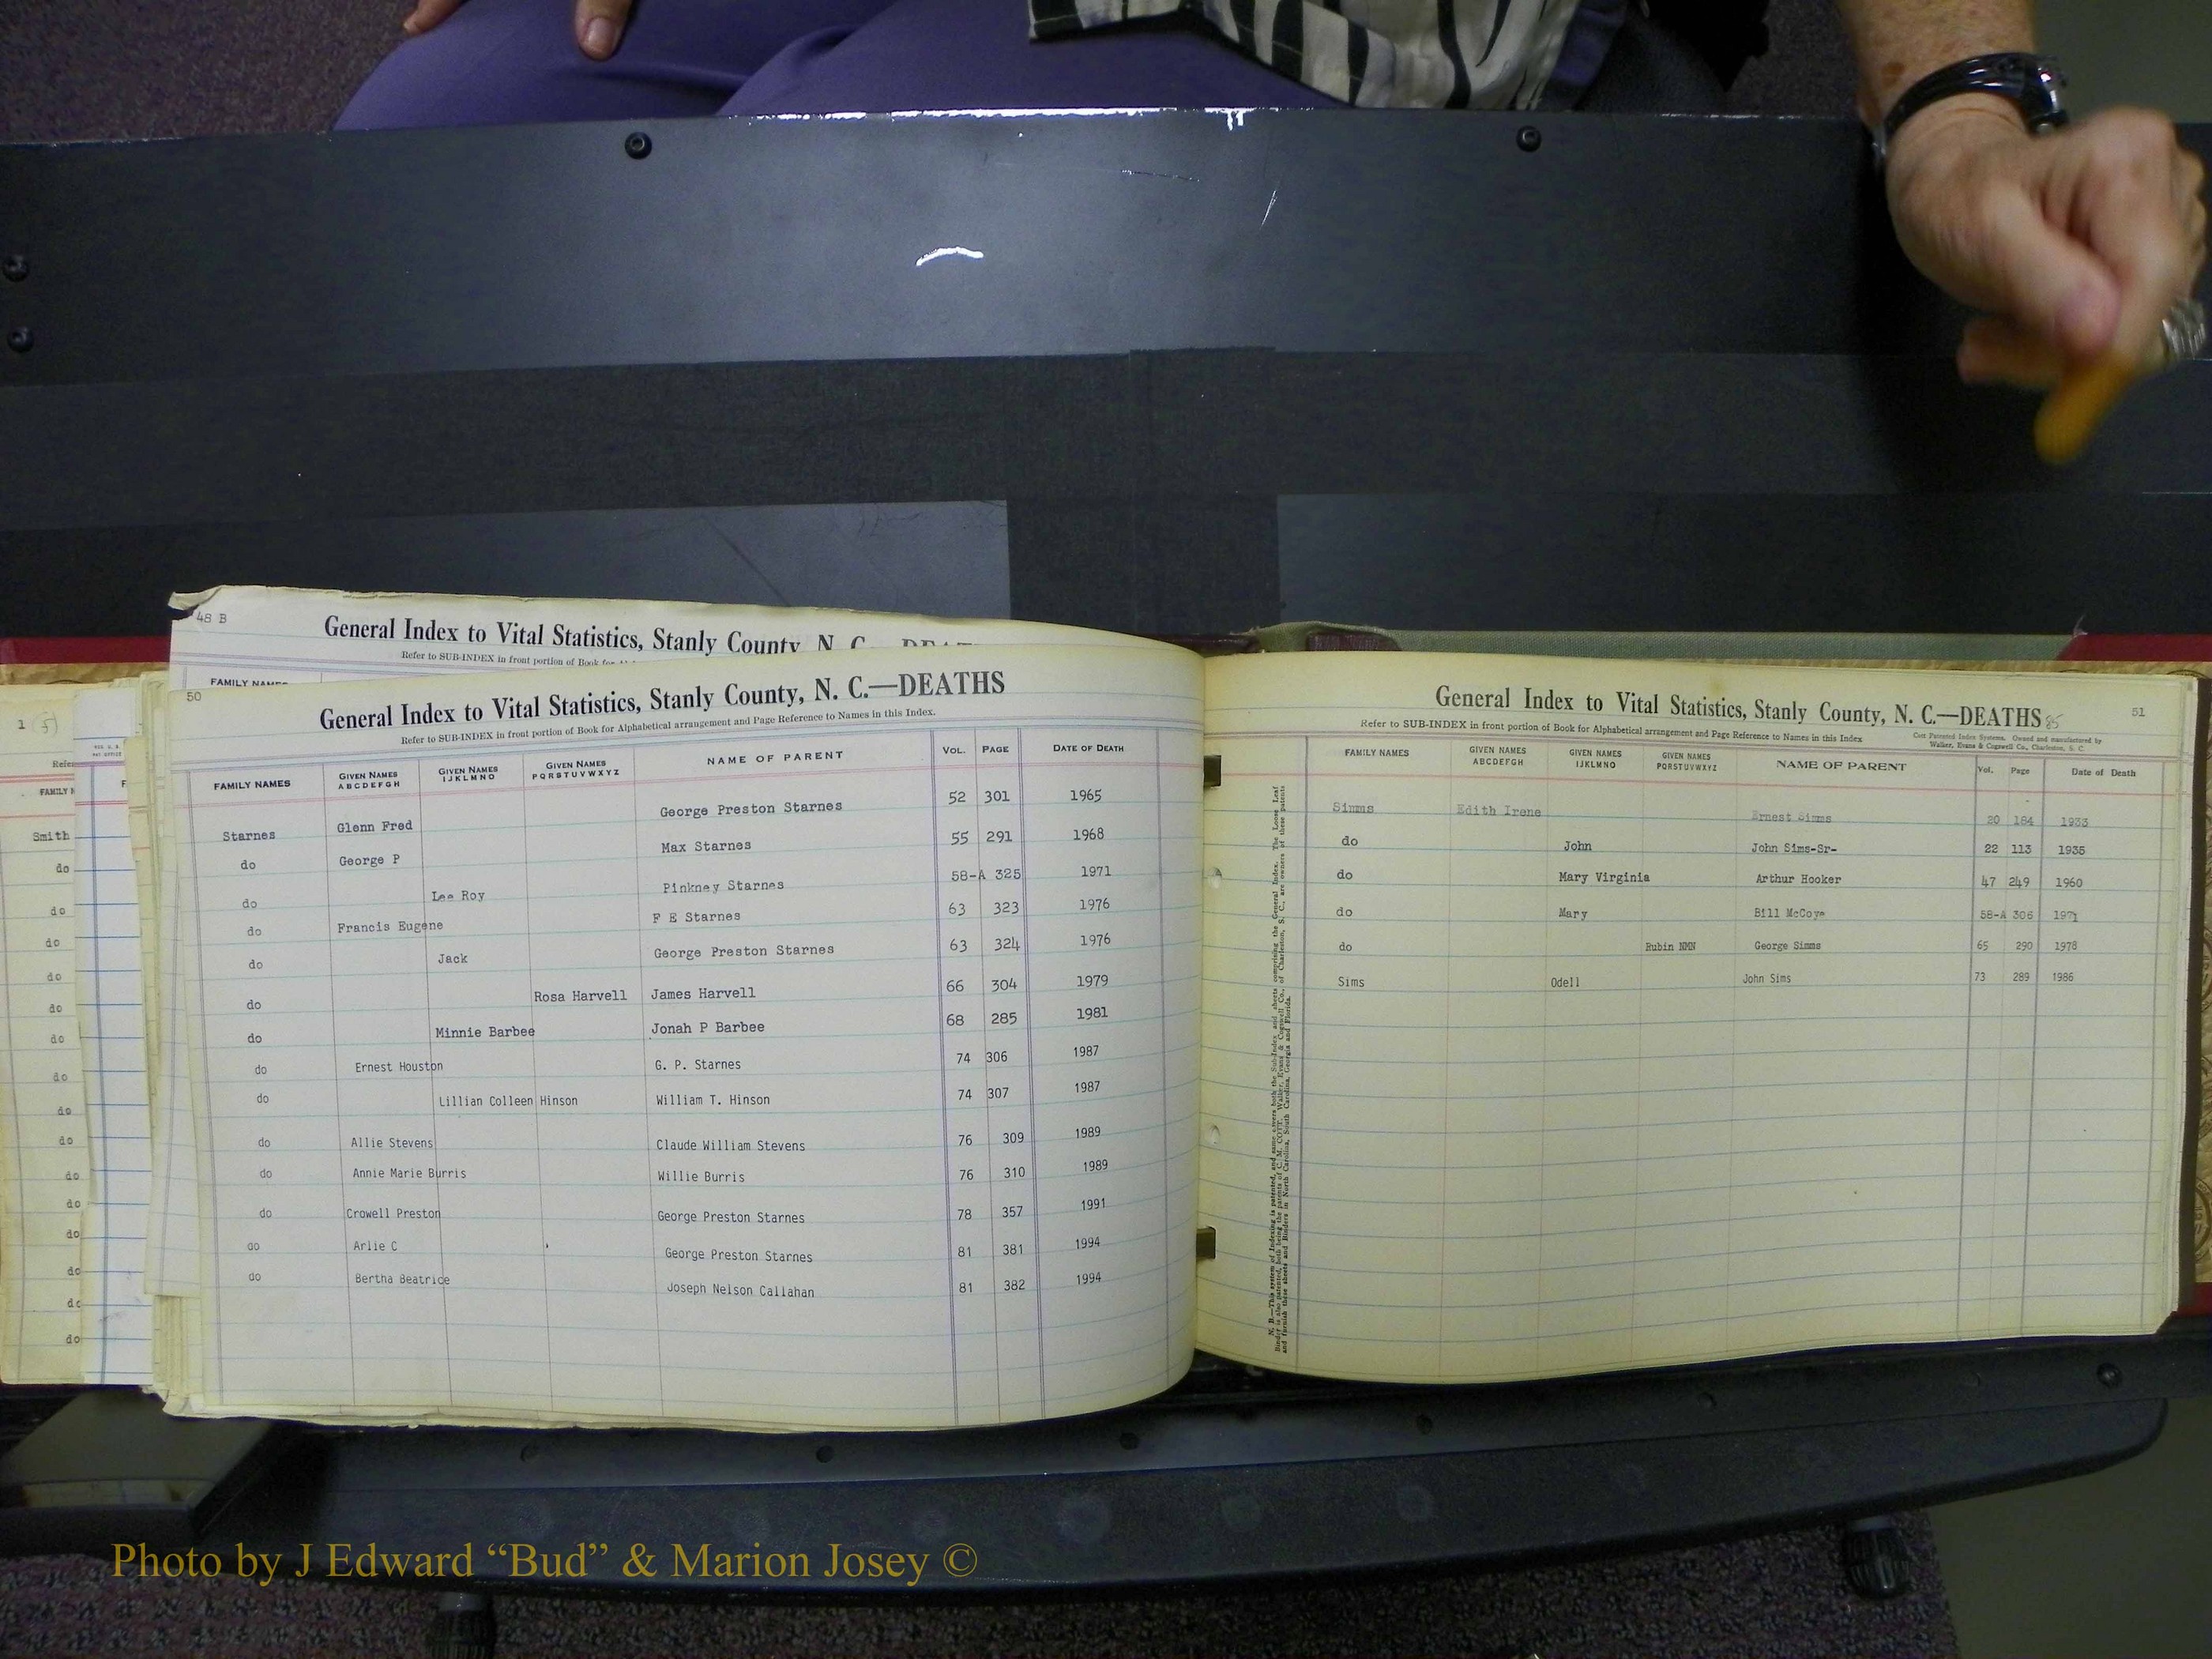 48 B
General Index to Vital Statistics, Stanly County, N. C.
Refer to SUB-INDEX in front portion of Book
FAMILY NAMES
1 (5)
Refer
FAMILY N
Smith
do
do
do
do
do
do
do
do
do
do
do
do
do
do
do
50
General Index to Vital Statistics, Stanly County, N. C.—DEATHS
Refer to SUB-INDEX in front portion of Book for Alphabetical arrangement and Page Reference to Names in this Index.
FAMILY NAMES GIVEN NAMES ABCDEFGH GIVEN NAMES IJKLMNO GIVEN NAMES PQRSTUVWXYZ NAME OF PARENT VOL. PAGE DATE OF DEATH
Starnes Glenn Fred George Preston Starnes 52 301 1965
do George P Max Starnes 55 291 1968
do Lee Roy Pinkney Starnes 58-A 325 1971
do Francis Eugene F E Starnes 63 323 1976
do Jack George Preston Starnes 63 324 1976
do Rosa Harvell James Harvell 66 304 1979
do Minnie Barbee Jonah P Barbee 68 285 1981
do Ernest Houston G. P. Starnes 74 306 1987
do Lillian Colleen Hinson William T. Hinson 74 307 1987
do Allie Stevens Claude William Stevens 76 309 1989
do Annie Marie Burris Willie Burris 76 310 1989
do Crowell Preston George Preston Starnes 78 357 1991
do Arlie C George Preston Starnes 81 381 1994
do Bertha Beatrice Joseph Nelson Callahan 81 382 1994
General Index to Vital Statistics, Stanly County, N. C.—DEATHS 85 51
Refer to SUB-INDEX in front portion of Book for Alphabetical arrangement and Page Reference to Names in this Index
Cott Patented Index Systems. Owned and manufactured by
Walker, Evans & Cogswell Co., Charleston, S. C.
FAMILY NAMES GIVEN NAMES ABCDEFGH GIVEN NAMES IJKLMNO GIVEN NAMES PQRSTUVWXYZ NAME OF PARENT Vol. Page Date of Death
Simms Edith Irene Ernest Simms 20 184 1933
do John John Sims-Sr- 22 113 1935
do Mary Virginia Arthur Hooker 47 249 1960
do Mary Bill McCoye 58-A 306 1971
do Rubin NMN George Simms 65 290 1978
Sims Odell John Sims 73 289 1986
N. B.—This system of Indexing is patented, and same covers both the Sub-Index and sheets comprising the General Index. The Loose Leaf
Binder is also patented, both being the patents of C. M. COTT. Walker, Evans & Cogswell Co., of Charleston, S. C., are owners of these patents
and furnish these sheets and Binders in North Carolina, South Carolina, Georgia and Florida.
Photo by J Edward “Bud” & Marion Josey ©